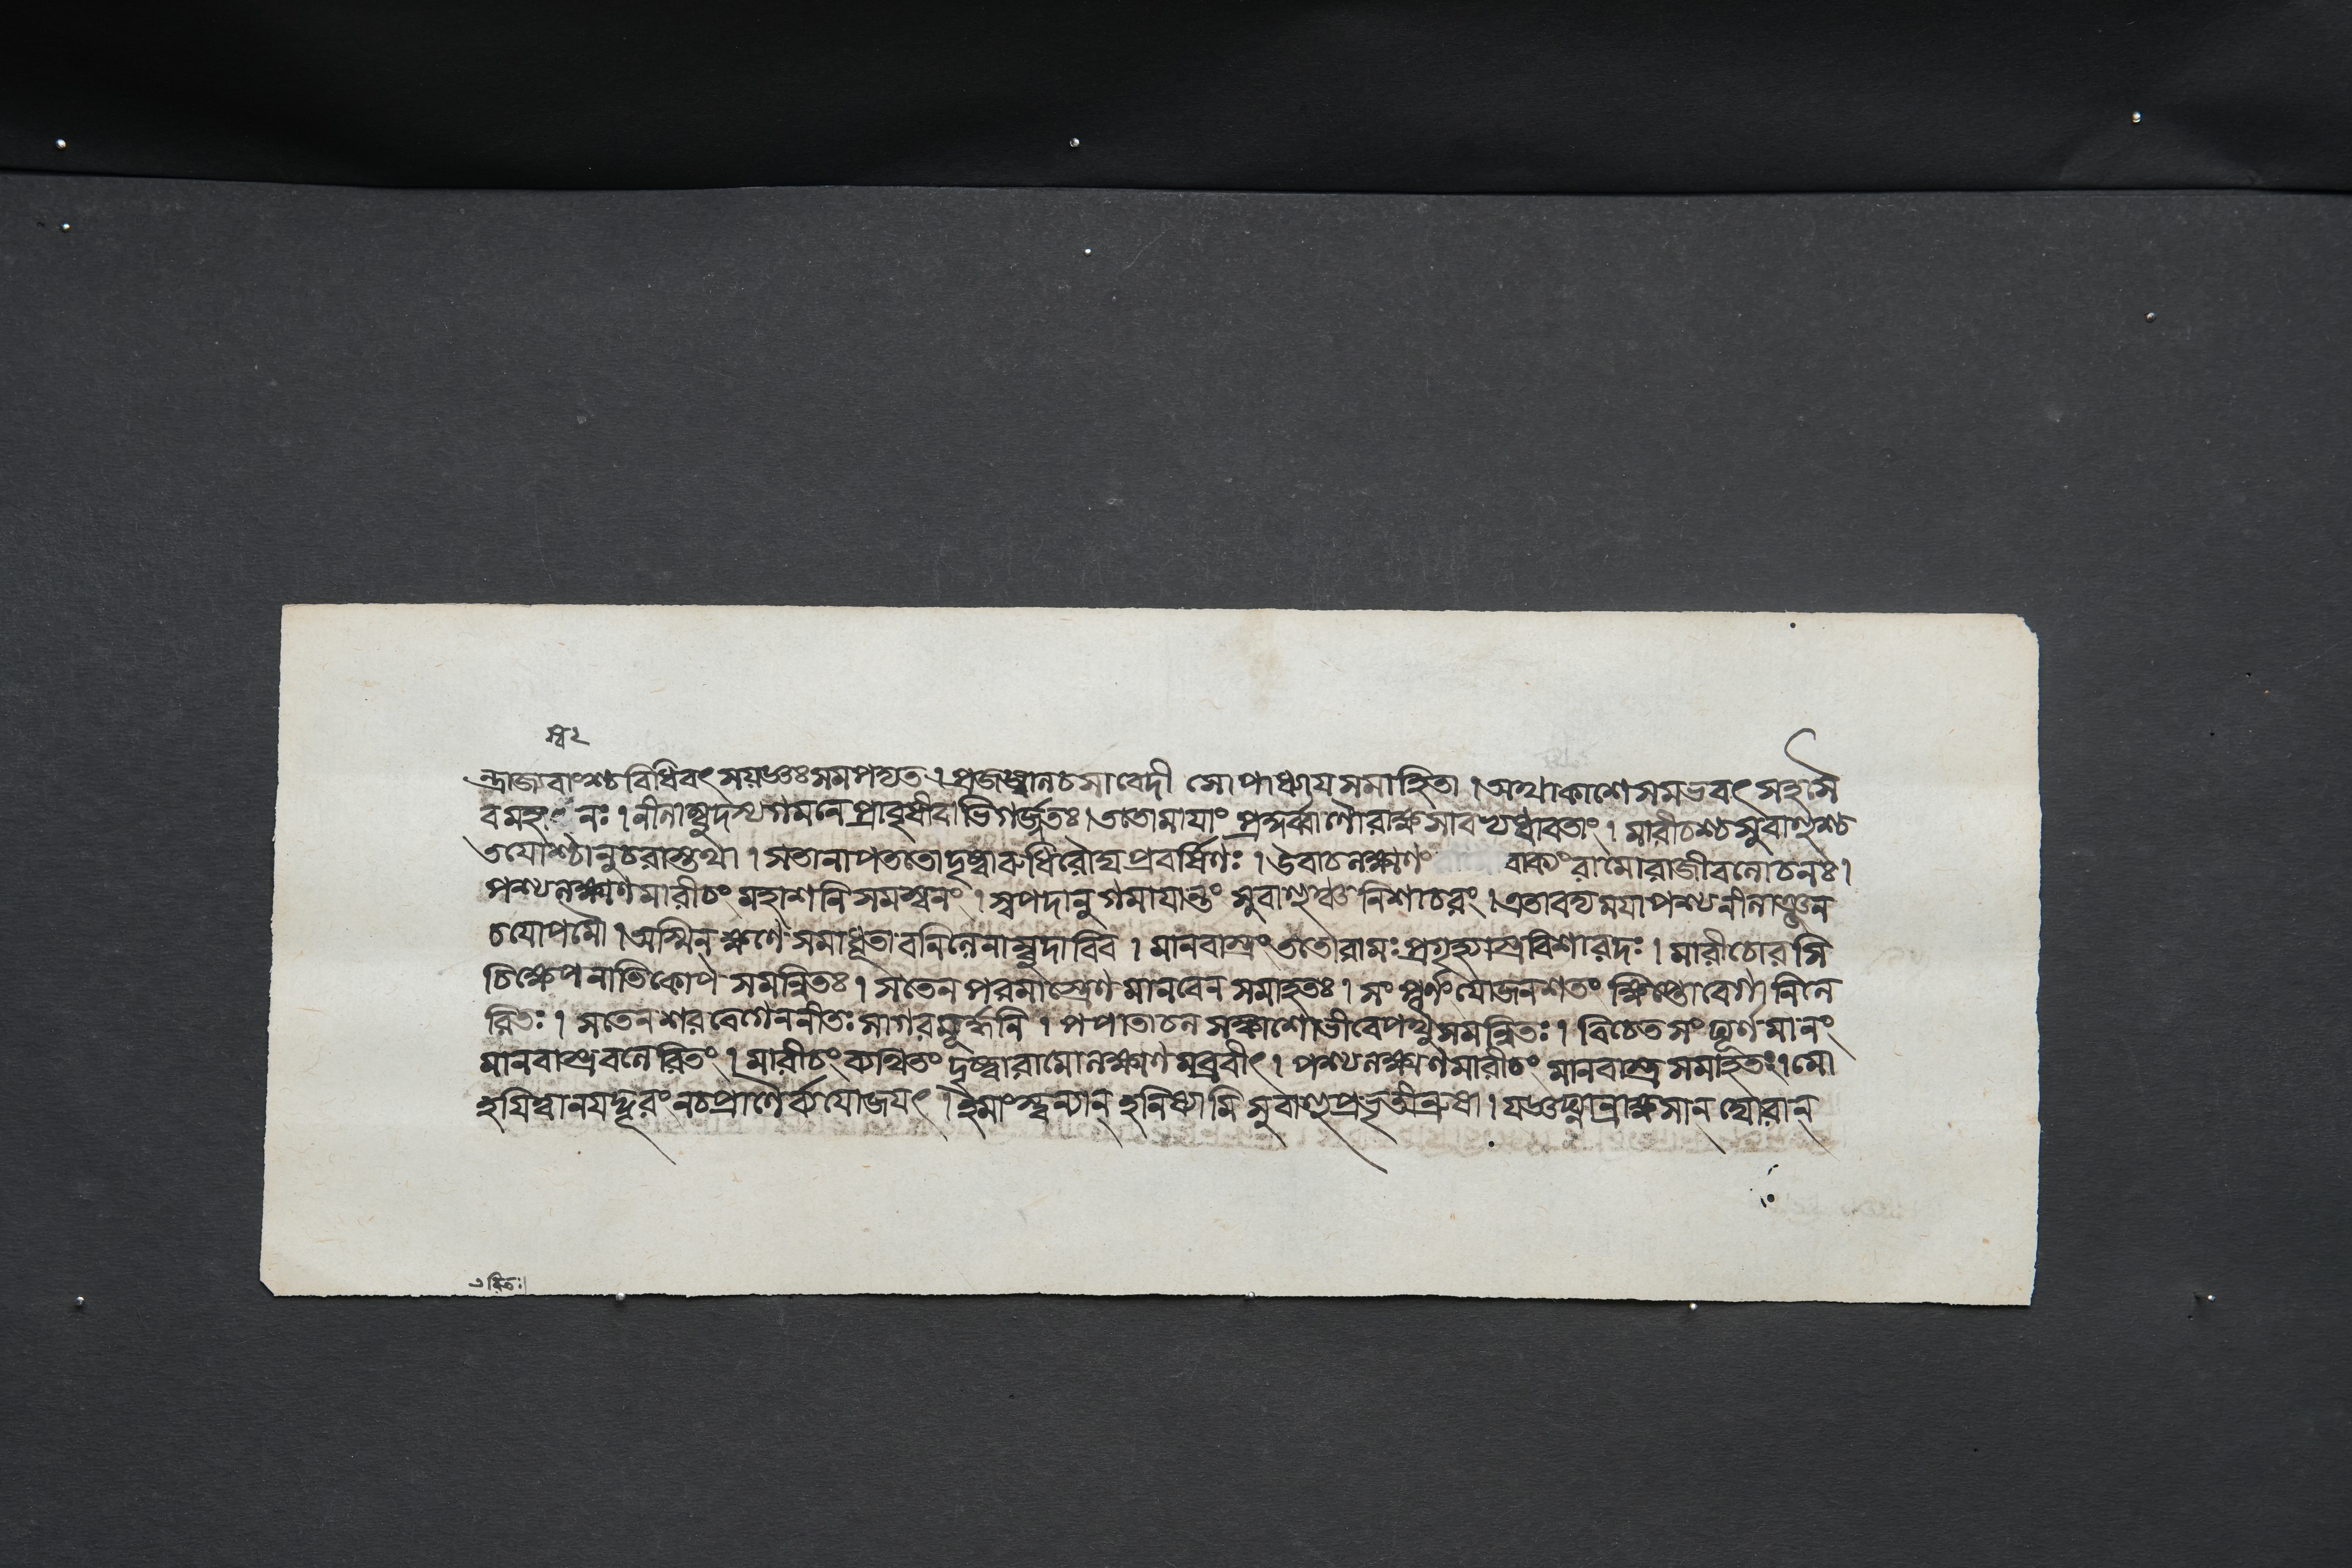 স্ব২
ন্দ্রাজাবাংশ্চবিধিবৎ সযজ্ঞঃ সমপদ্যত । প্রজজ্বানচসাবেদী সোপাধ্যায সমাহিতা । অথাকাশে সমভবৎ সহসৈ
বমহ নঃ । নীনাম্বুদস্থগমনে প্রাবৃষীবাভিগর্জ্জতঃ । ততোমাযাং প্রকুর্ব্বাণৌরাক্ষসাবথধাবতাং । মারীচশ্চ সুবাহুশ্চ
তযোশ্চানুচরাস্তথা । সতানাপততোদৃষ্ট্বারুধিরৌঘপ্রবর্ষিণঃ । উবাচনক্ষ্মণং বাক্যং রামোরাজীবনোচনঃ ।
পশ্যনক্ষ্মণমারীচং মহাশনি সমস্বনং । স্বপদানুগমাযান্তং সুবাহুঞ্চনিশাচরং । এতাবদ্যমযাপশ্যনীনাঞ্জন
চযোপমৌ । অস্মিন্ক্ষণে সমাধূতাবনিনেনাম্বুদাবিব । মানবাস্ত্রং ততোরামঃ প্রগৃহ্যাস্ত্রবিশারদঃ । মারীচোরসি
চিক্ষেপনাভিকোপ সমন্বিতঃ । সতেন পরমাস্ত্রেণ মানবেন সমাহতঃ । সংপূর্ণং যোজনশতং ক্ষিপ্তোবেগানিনে
রিতঃ । সতেনশরবেগেননীতঃ সাগরমূর্দ্ধনি । পপাতাচনসঙ্কাশোভীবেপথু সমন্বিতঃ । বিচেতসং ঘূর্ণমানং
মানবাস্ত্রবনেরিতং । মারীচং ব্যথিতং দৃষ্ট্বারামোনক্ষ্মণমব্রবীৎ । পশ্যনক্ষ্মণমারীচং মানবাস্ত্র সমাহতং । মো
হযিত্বানযদ্দূরং নচপ্রাণৈর্ব্যযোজযৎ । ইমাংস্ত্বন্যান্ হনিষ্যামি সুবাহুপ্রভৃতীন্রুধা । যজ্ঞঘ্নান্রাক্ষসান্ ঘোরান্